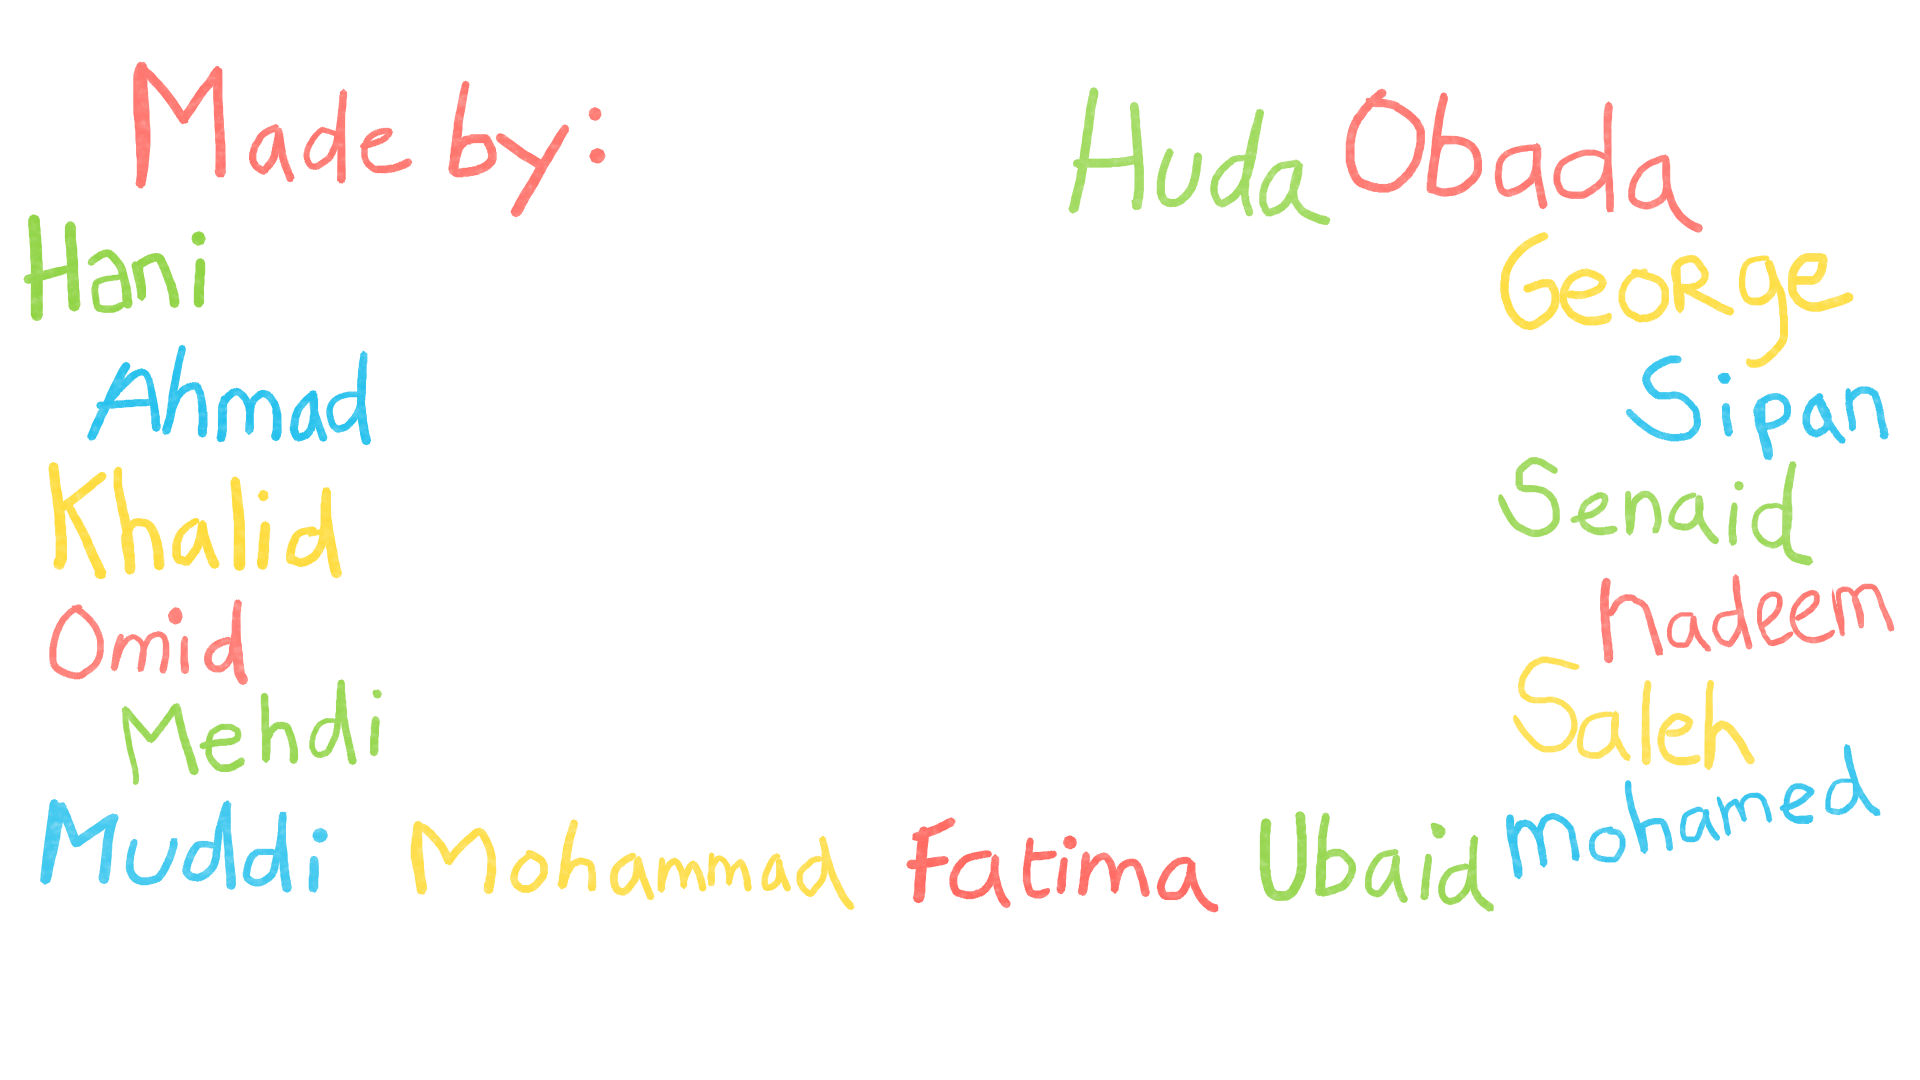 Made by:
Huda Obada
Hani
George
Ahmad
Sipan
Khalid
Senaid
Omid
nadeem
Mehdi
Saleh
Muddi Mohammad Fatima Ubaid mohamed